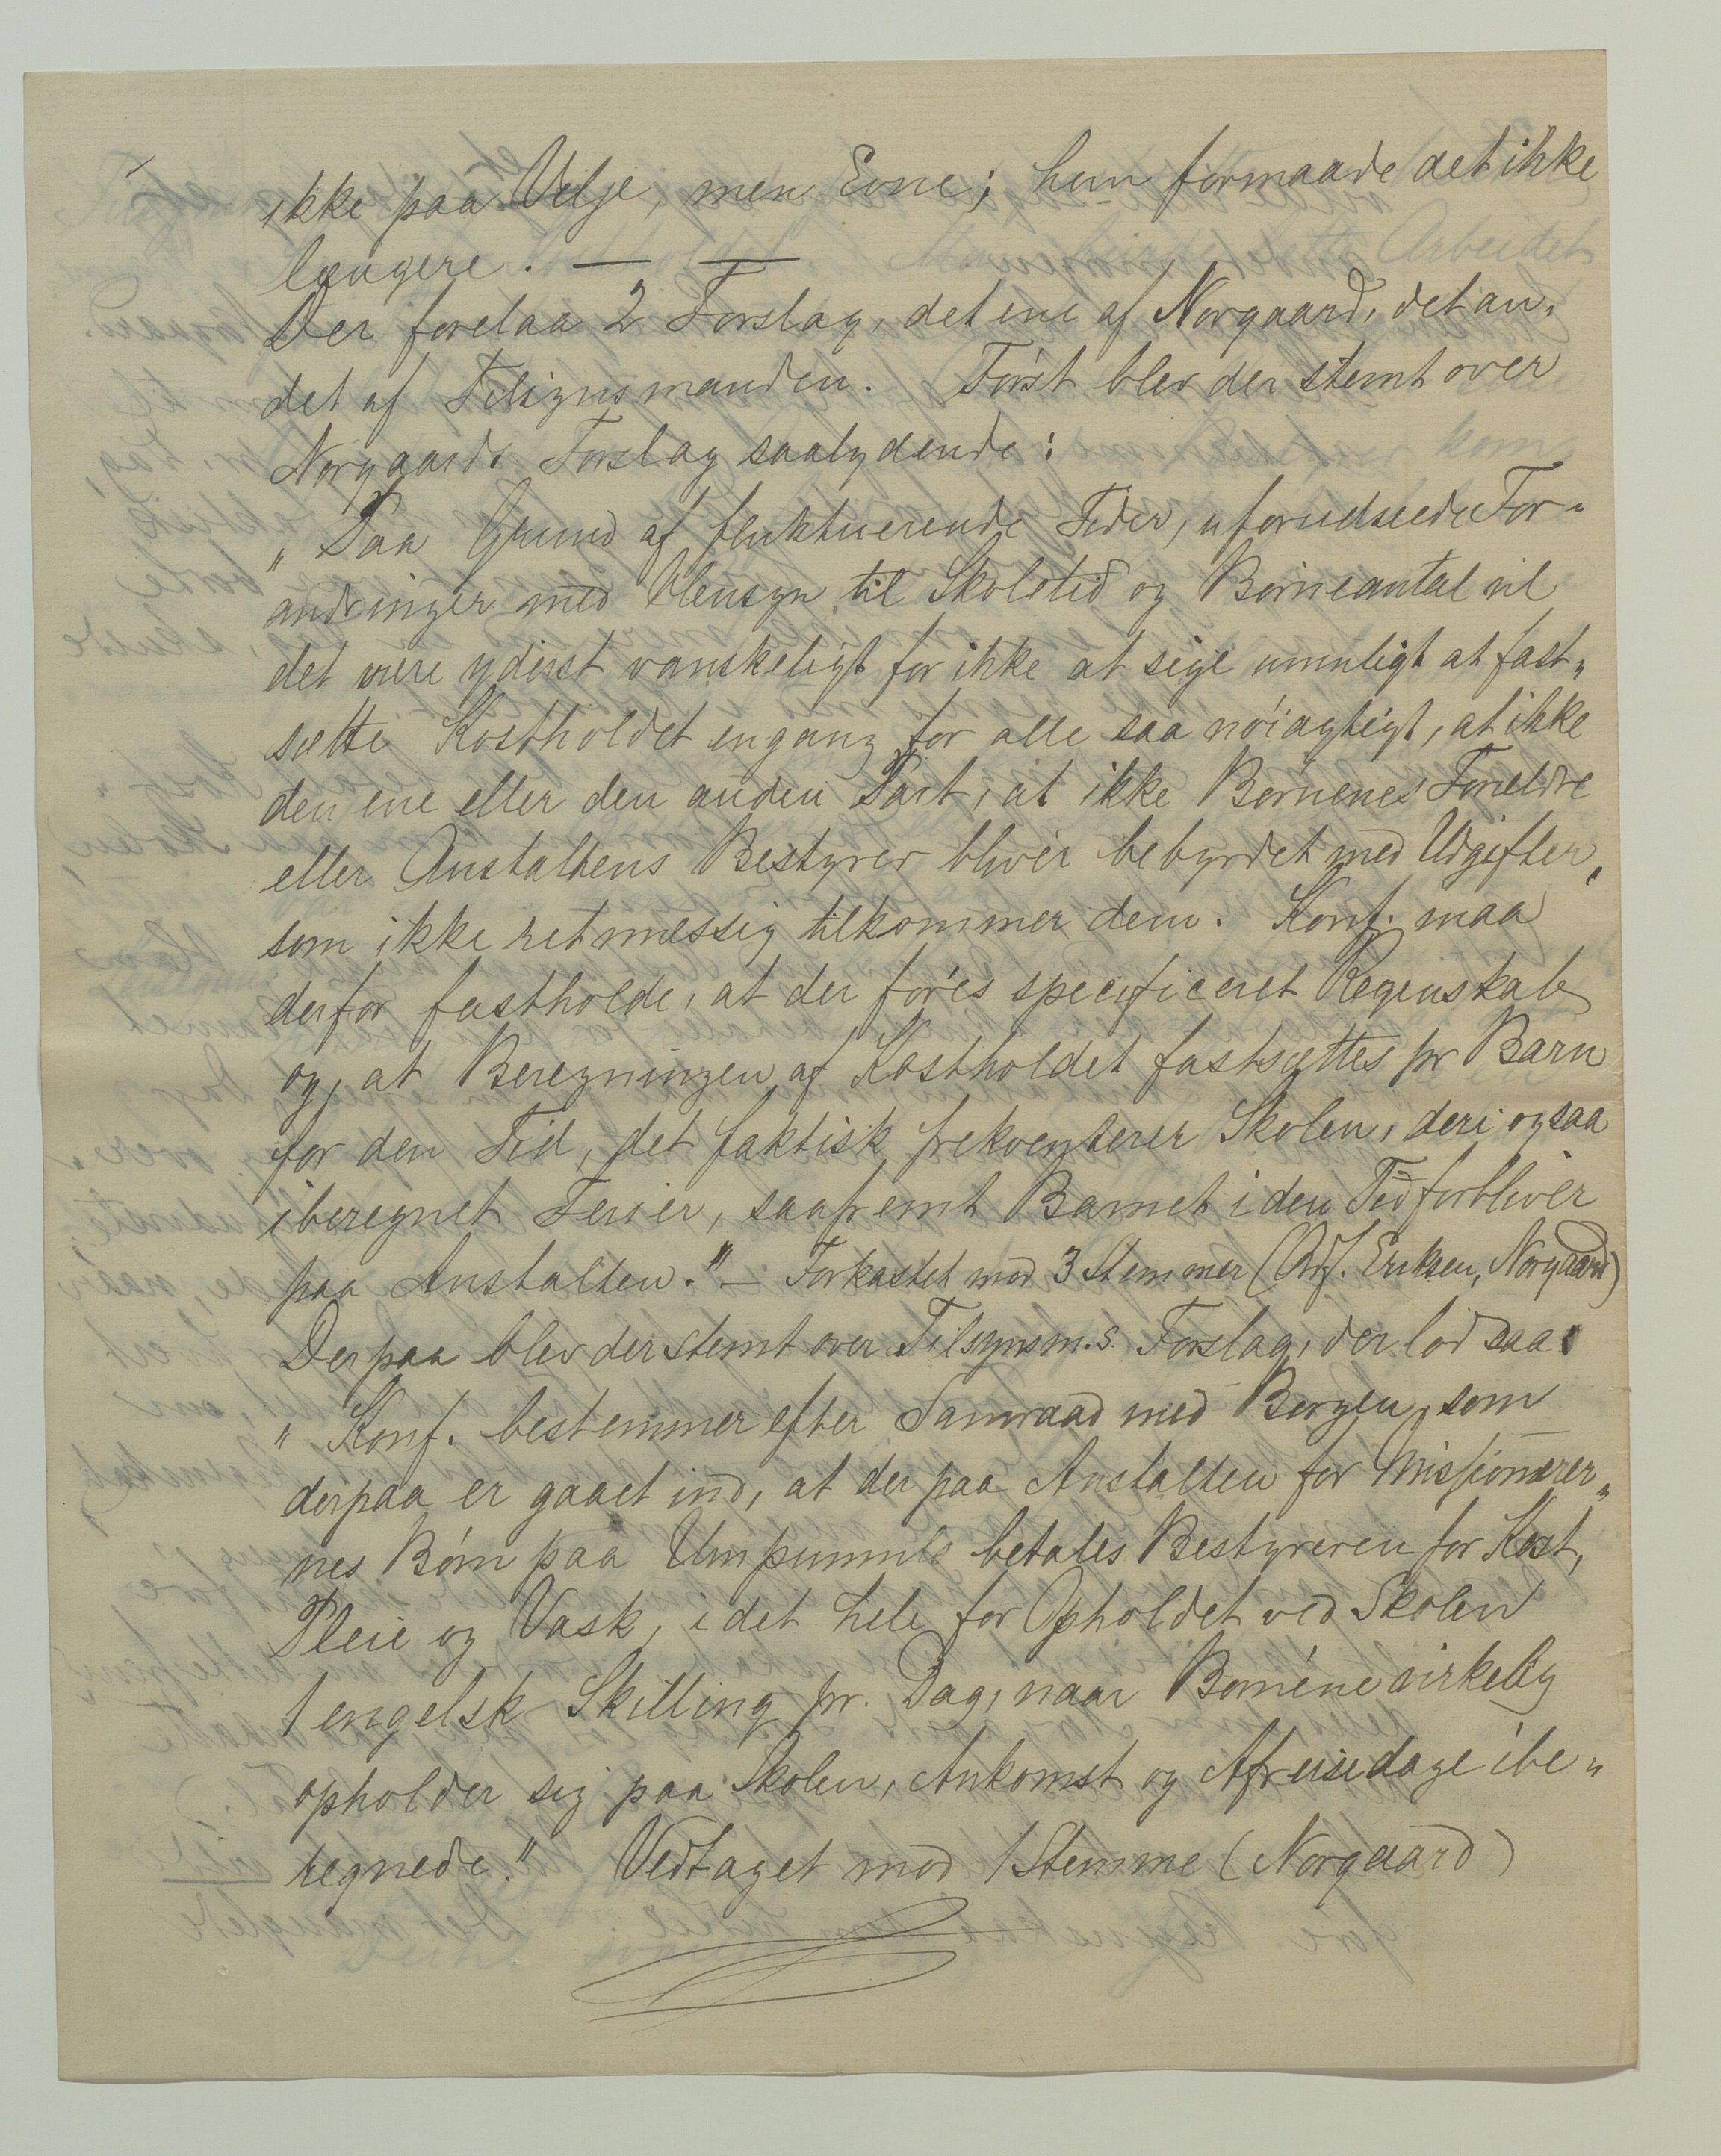 ikke paa Vilje, men Evne; hun formaade det ikke
længere. — —
Der forelaa 2 Forslag, det ene af Norgaard, det an-
det af Tilsynsmanden. Först blev der stemt over
Norgaards Forslag saalydende:
"Paa Grund af fluktuerende Tider, uforudseede For-
andringer med Hensyn til Skoletid og Börneantal vil
det være yderst vanskeligt for ikke at sige umuligt at fast-
sætte Kostholdet engang for alle saa nöiagtigt, at ikke
den ene eller den anden Part, at ikke Börnenes Foreldre
eller Anstaltens Bestyrer bliver bebyrdet med Udgifter,
som ikke retmæssig tilkommer dem. Konf. maa
derfor fastholde, at der föres specificeret Regnskab
og, at Beregningen af Kostholdet fastsættes pr Barn
for den Tid, det faktisk frekventerer Skolen, deri ogsaa
iberegnet Ferier, saafremt Barnet i den Tid forbliver
paa Anstalten." — Forkastet mod 3 Stemmer (Ödf. Eriksen, Norgaard)
Derpaa blev der stemt over Tilsynsm.s. Forslag, der löd saa:
"Konf. bestemmer efter Samraad med Borgen, som
derpaa er gaaet ind, at der paa Anstalten for Missionærer-
nes Börn paa Umpumulo betales Bestyreren for Kost,
Pleie og Vask, i det hele for Opholdet ved Skolen
1 engelsk Skilling pr. Dag, naar Börnene virkelig
opholder sig paa Skolen, Ankomst og Afreisedage ibe-
regnede." Vedtaget mod 1 Stemme (Norgaard)